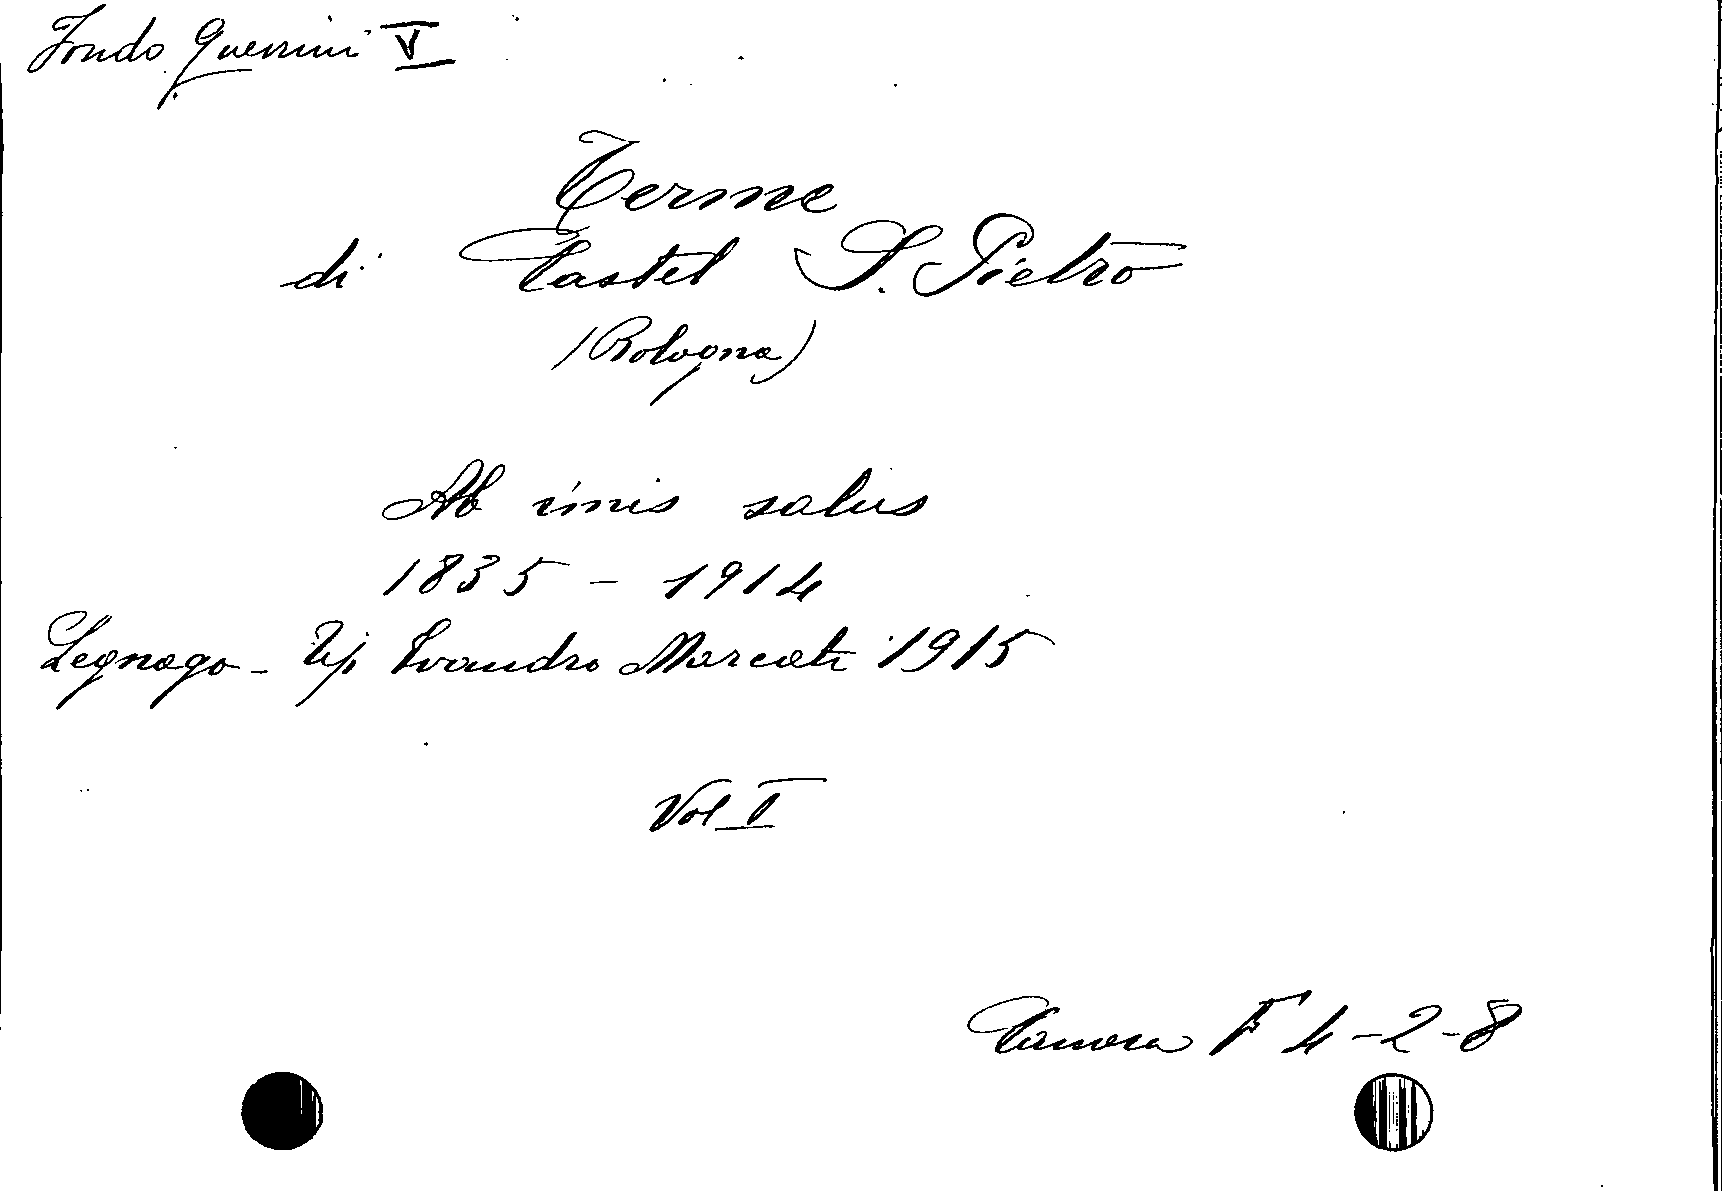 Fondo Guerrini V
Terme
di Castel S. Pietro
(Bologna)
Ab imis salus
1835 - 1914
Legnago - Tip Evandro Marcati 1915
Vol I
Camera F 4-2-8